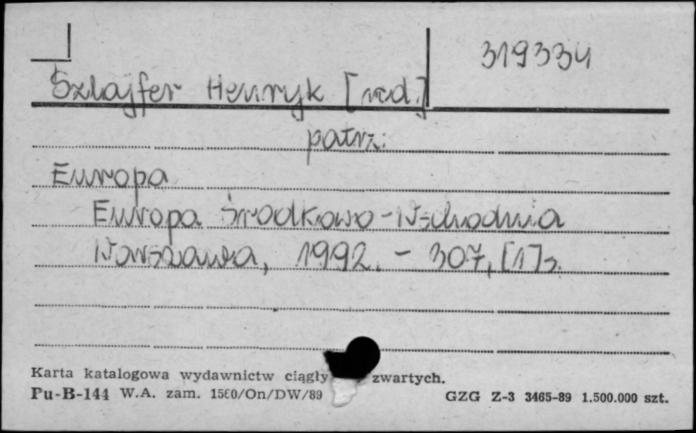 319334
Szlajfer Henryk [red.]
patrz:
Europa
Europa Środkowo-Wschodnia
Warszawa, 1992. - 307, [1] s.
Karta katalogowa wydawnictw ciągły zwartych.
Pu-B-144 W.A. zam. 1560/On/DW/89 GZG Z-3 3465-89 1.500.000 szt.